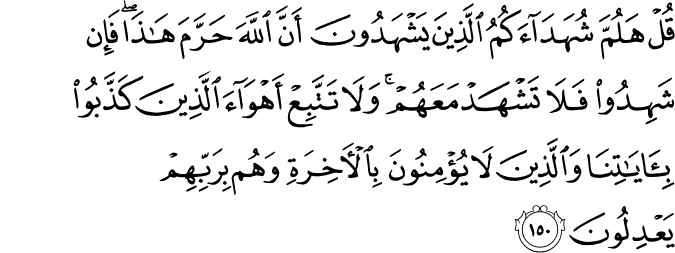 قُلۡ هَلُمَّ شُهَدَآءَكُمُ ٱلَّذِينَ يَشۡهَدُونَ أَنَّ ٱللَّهَ حَرَّمَ هَٰذَاۖ فَإِن
شَهِدُواْ فَلَا تَشۡهَدۡ مَعَهُمۡۚ وَلَا تَتَّبِعۡ أَهۡوَآءَ ٱلَّذِينَ كَذَّبُواْ
بِـَٔايَٰتِنَا وَٱلَّذِينَ لَا يُؤۡمِنُونَ بِٱلۡأٓخِرَةِ وَهُم بِرَبِّهِمۡ
يَعۡدِلُونَ ١٥٠